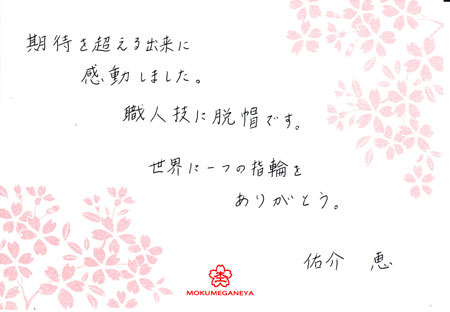 期待を超える出来に
感動しました。
職人技に脱帽です。
世界に一つの指輪を
ありがとう。
佑介 恵
MOKUMEGANEYA